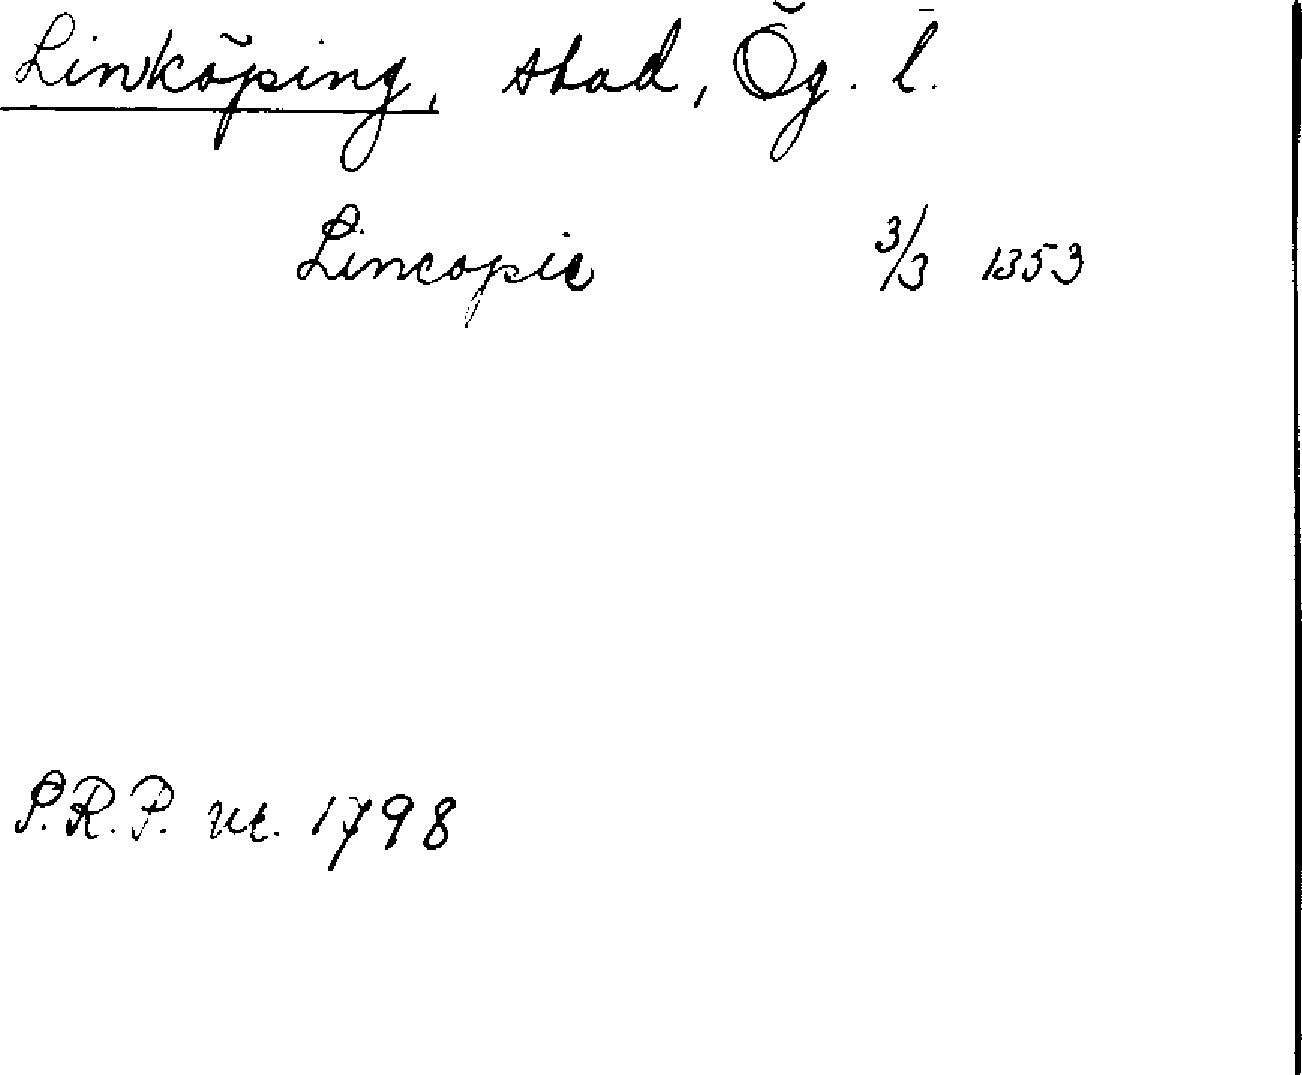 Linköping, stad, Ög. l.
Lincopie 3/3 1353
P.R.P. nr. 1798